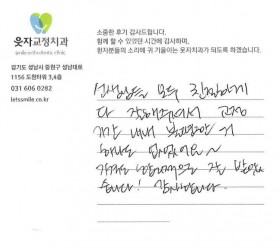 웃자교정치과
smile orthodontic clinic
경기도 성남시 중원구 성남대로
1156 도현타워 3,4층
031 606 0282
letssmile.co.kr
소중한 후기 감사드립니다.
함께 할 수 있었던 시간에 감사하며,
환자분들의 소리에 귀 기울이는 웃자치과가 되도록 하겠습니다.
선생님들 모두 친절하게
다 잘해주셔서 교정
기간 내내 불편한 거
하나도 없었어요~
가격도 합리적으로 잘 받았
습니다! 감사합니다.